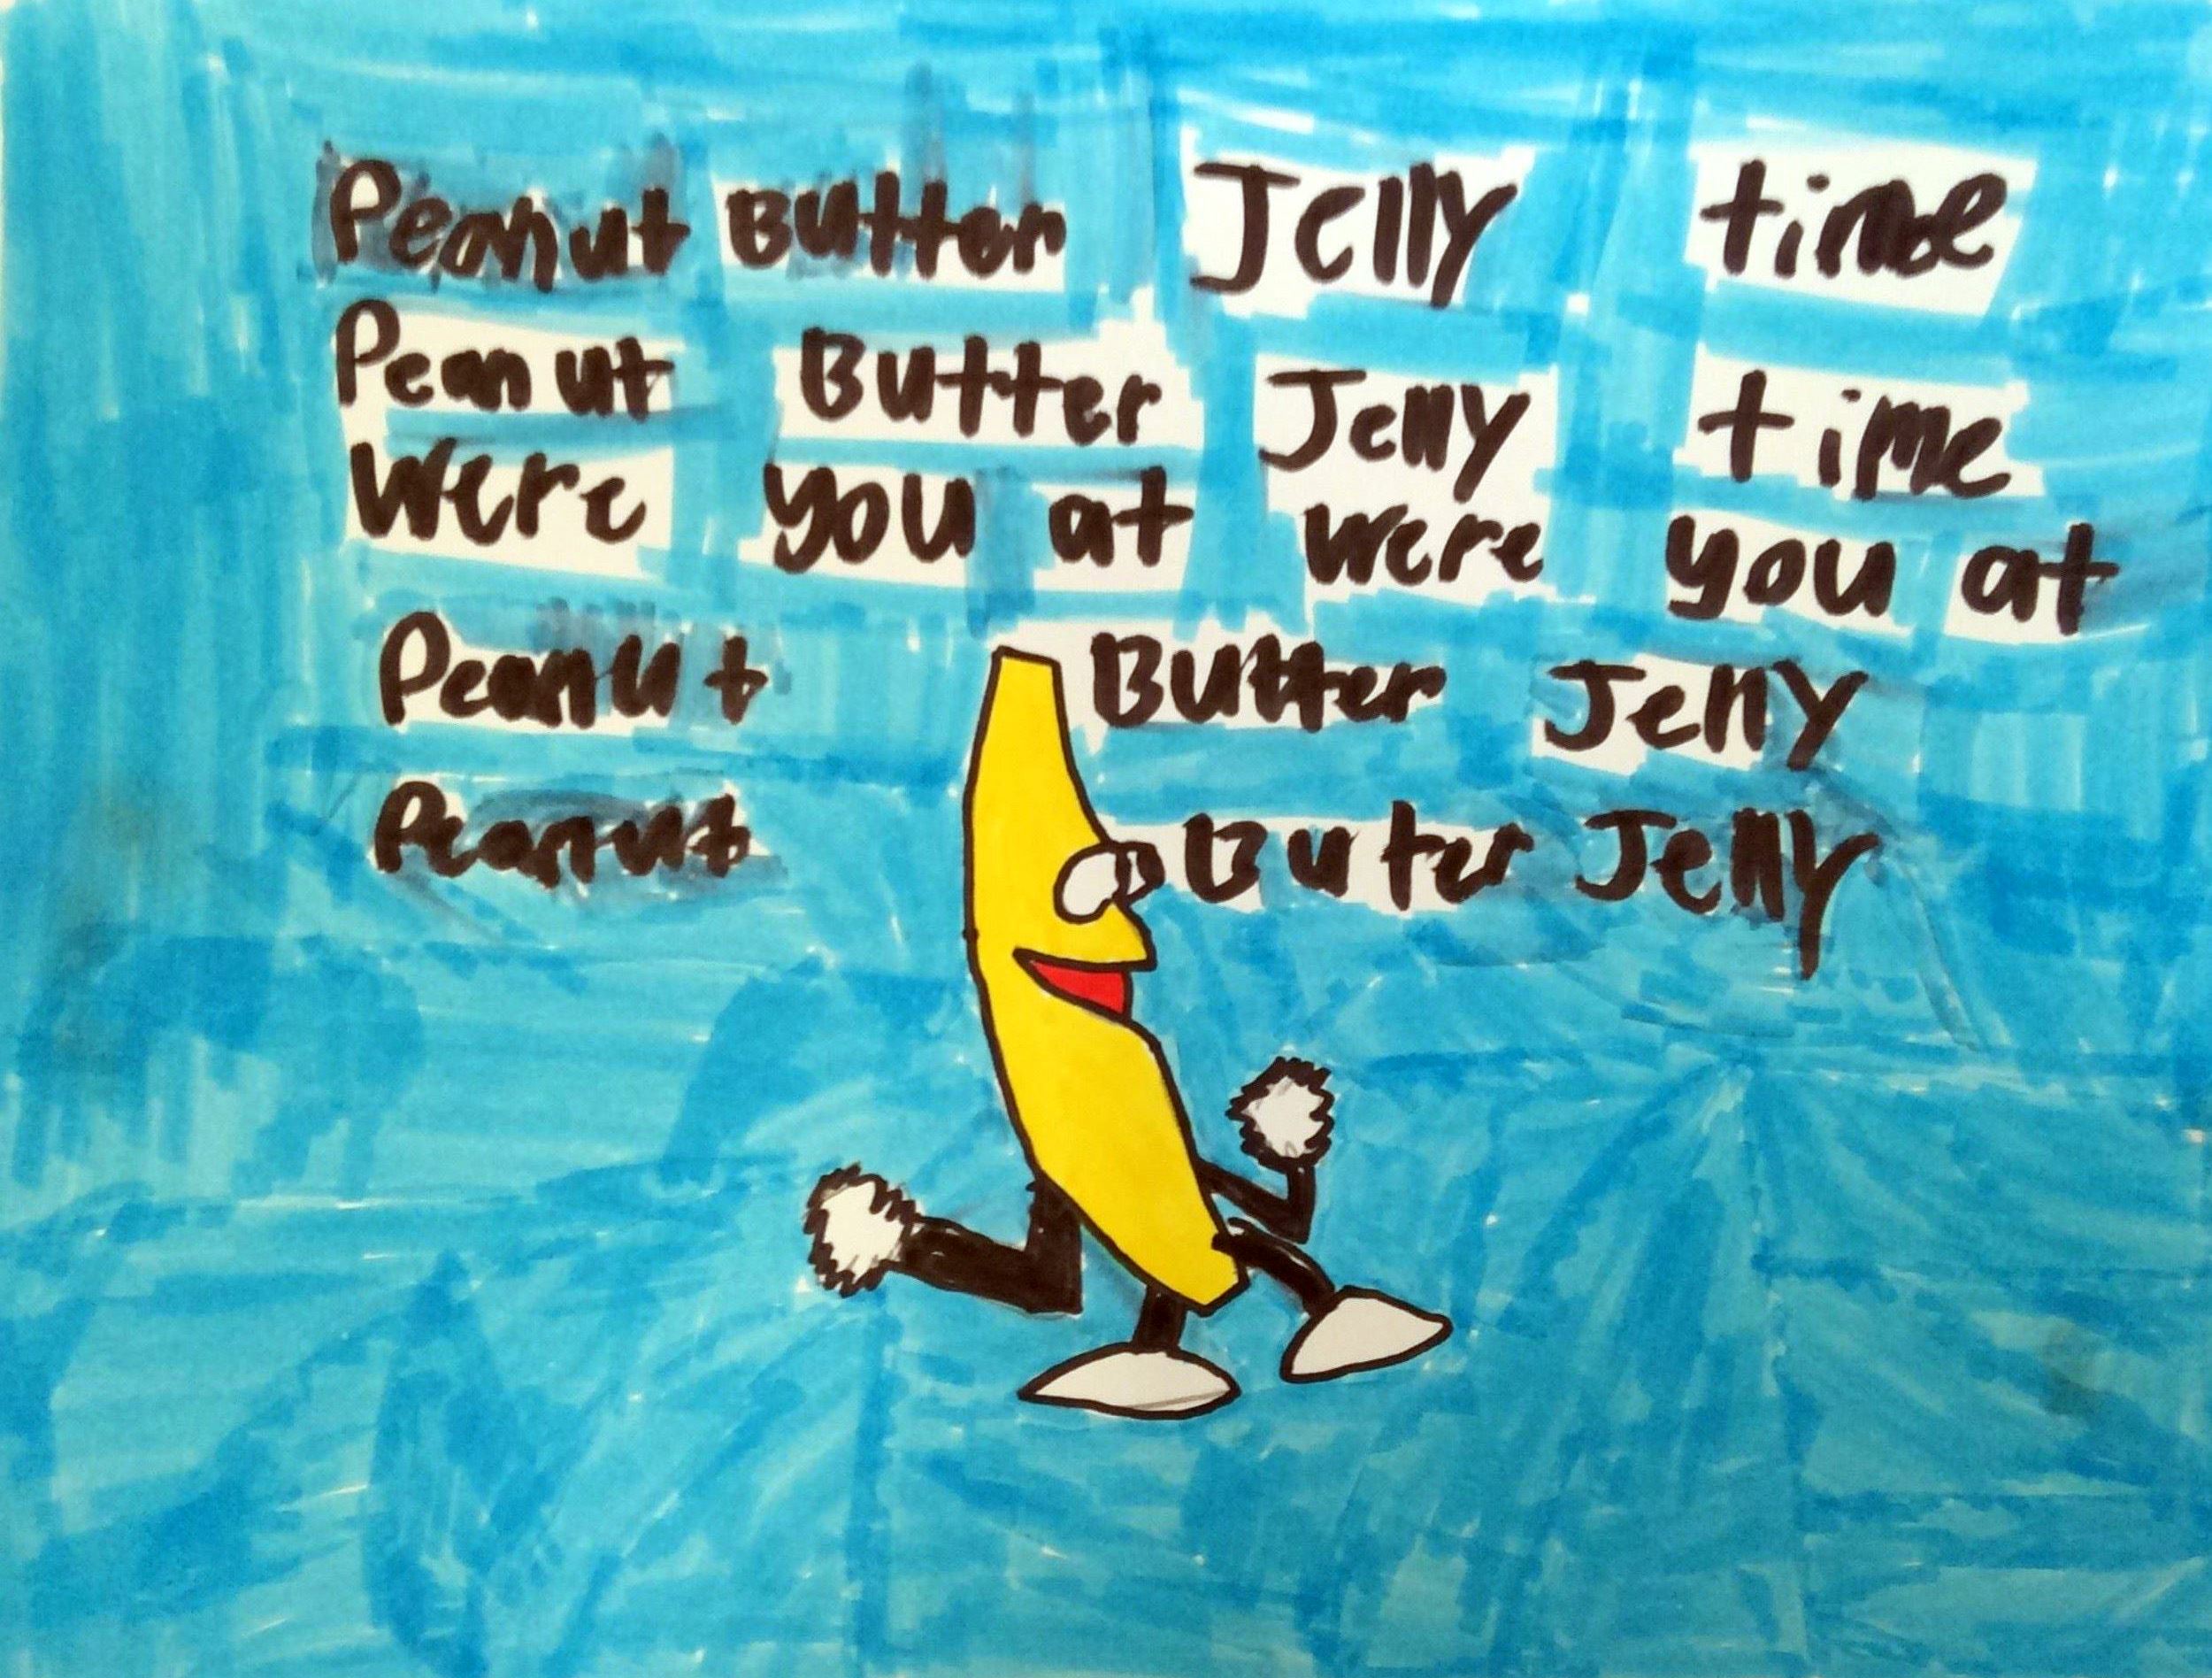 Peanut Butter Jelly time
Peanut Butter Jelly time
Were you at were you at
Peanut Butter Jelly
Peanut Buter Jelly